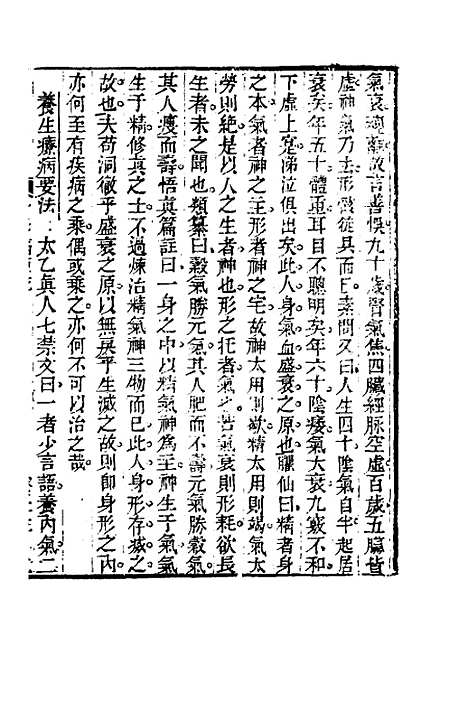 氣衰魂離故言善悞九十歲腎氣焦四臟經脉空虛百歲五臟皆
虛神氣乃去形骸徒具而曰素問又曰人生四十隂氣自半起居
衰矣年五十體重耳目不聰明矣年六十隂痿氣大衰九竅不和
下虛上實涕泣俱出矣此人身氣血盛衰之原也臞仙曰精者身
之本氣者神之主形者神之宅故神太用則歇精太用則竭氣太
勞則絶是以人之生者神也形之托者氣也若氣衰則形耗欲長
生者未之聞也類纂曰穀氣勝元氣其人肥而不壽元氣勝穀氣
其人瘦而壽悟真篇註曰一身之中以精氣神為主神生于氣氣
生于精修真之士不過煉治精氣神三物而已此人身形存滅之
故也夫苟洞徹乎盛衰之原以無戾乎生滅之故則即身形之内
亦何至有疾病之乘偶或乘之亦何不可以治之哉
養生療病要法 太乙真人七禁文曰一者少言語養內氣二